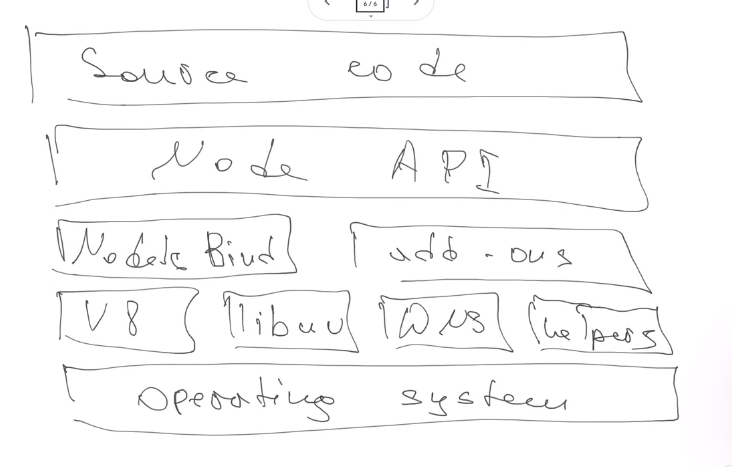 6/6
Source code
Node API
NodeJs Bind add-ons
V8 libuv DNS helpers
Operating system